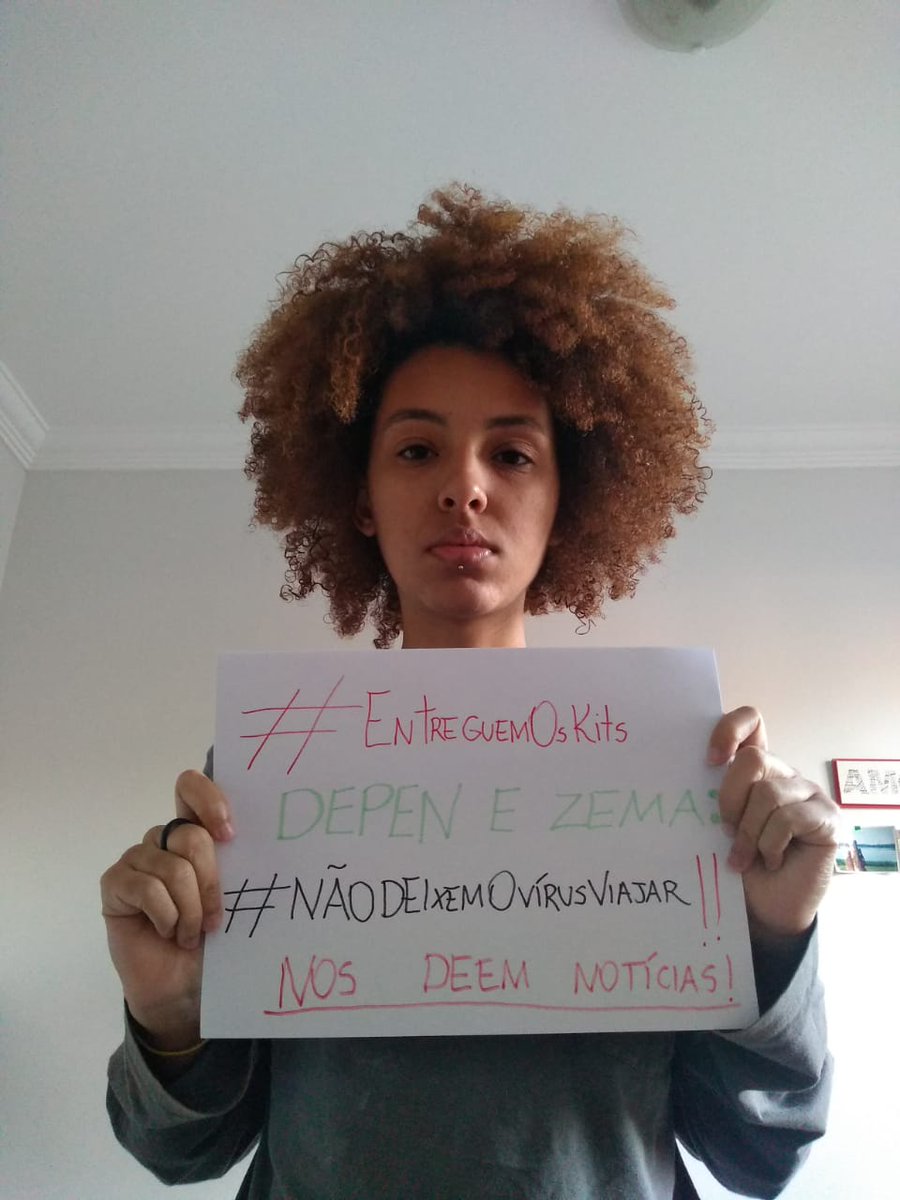 #EntreguemOsKits
DEPEN E ZEMA:
#NÃODEIXEMOVÍRUSVIAJAR!!
NOS DEEM NOTÍCIAS!